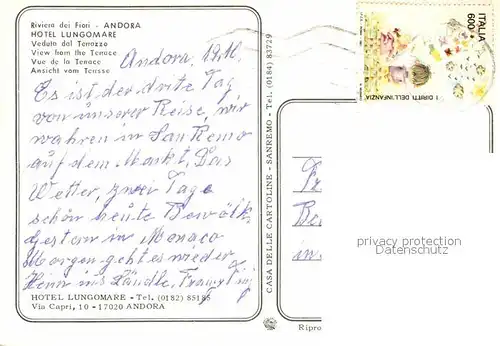 Riviera dei Fiori - ANDORA
HOTEL LUNGOMARE
Veduta dal Terrazzo
View from the Terrace
Vue de la Terrace
Ansicht vom Terisse
Andora, 19.10.
Es ist der dritte Tag
von unserer Reise, wir
wahren in San Remo
auf dem Markt. Das
Wetter, zwei Tage
schön heute Bewölk,
gestern in Monaco
Morgen geht es wieder
Heim ins Ländle,
HOTEL LUNGOMARE - Tel. (0182) 85185
Via Capri, 10 - 17020 ANDORA
CASA DELLE CARTOLINE - SANREMO - Tel. (0184) 83729
ITALIA
600
I DIRITTI DELL'INFANZIA
in
privacy protection
Datenschutz
Ripro